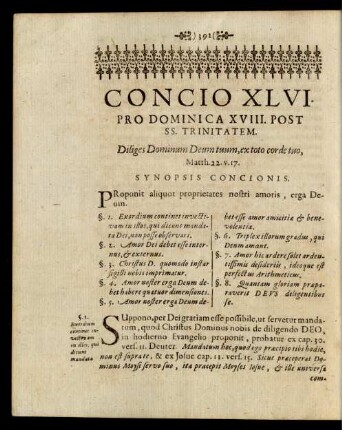 )392(
CONCIO XLVI.
PRO DOMINICA XVIII. POST
SS. TRINITATEM.
Diliges Dominum Deum tuum, ex toto corde tuo,
Matth. 22. v. 17.
SYNOPSIS CONCIONIS.
PRoponit aliquot proprietates nostri amoris, erga De-
um.
§. 1. Exordium continet invectivum
in illos, qui dicunt mandata
Dei, non posse observari.
§. 2. Amor Dei debet esse internus,
& externus.
§. 3. Christus D. quomodo instar
sigelli nobis imprimatur.
§. 4. Amor noster erga Deum debet
habere quatuor dimensiones.
§. 5. Amor noster erga Deum de-
bet esse amor amicitiæ & benevolentiæ.
§. 6. Triplex illorum gradus, qui
Deum amant.
§. 7. Amor hic ardere solet ardentissimis
desideriis, ideoque est
perfectus Arithmeticus.
§. 8. Quantam gloriam præparaverit
DEUS diligentibus
se.
§. 1.
Exordium
continet invectivum
in illos, qui
dicunt
mandata
SUppono, per Dei gratiam esse possibile, ut servetur mandatum,
quod Christus Dominus nobis de diligendo DEO,
in hodierno Evangelio proponit, probatur ex cap. 30.
vers. 11. Deuter. Mandatum hoc, quod ego præcipio tibi hodie,
non est supra te, & ex Josue cap. 11. vers. 15. Sicut præceperat Dominus
Moysi servo suo, ita præcepit Moyses Iosue, & ille universa
com-